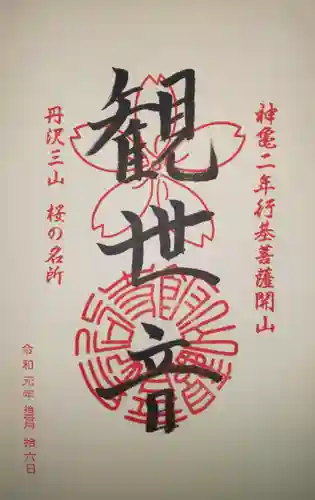 神亀二年行基菩薩開山
観世音
丹沢三山 桜の名所
令和元年 拾六日